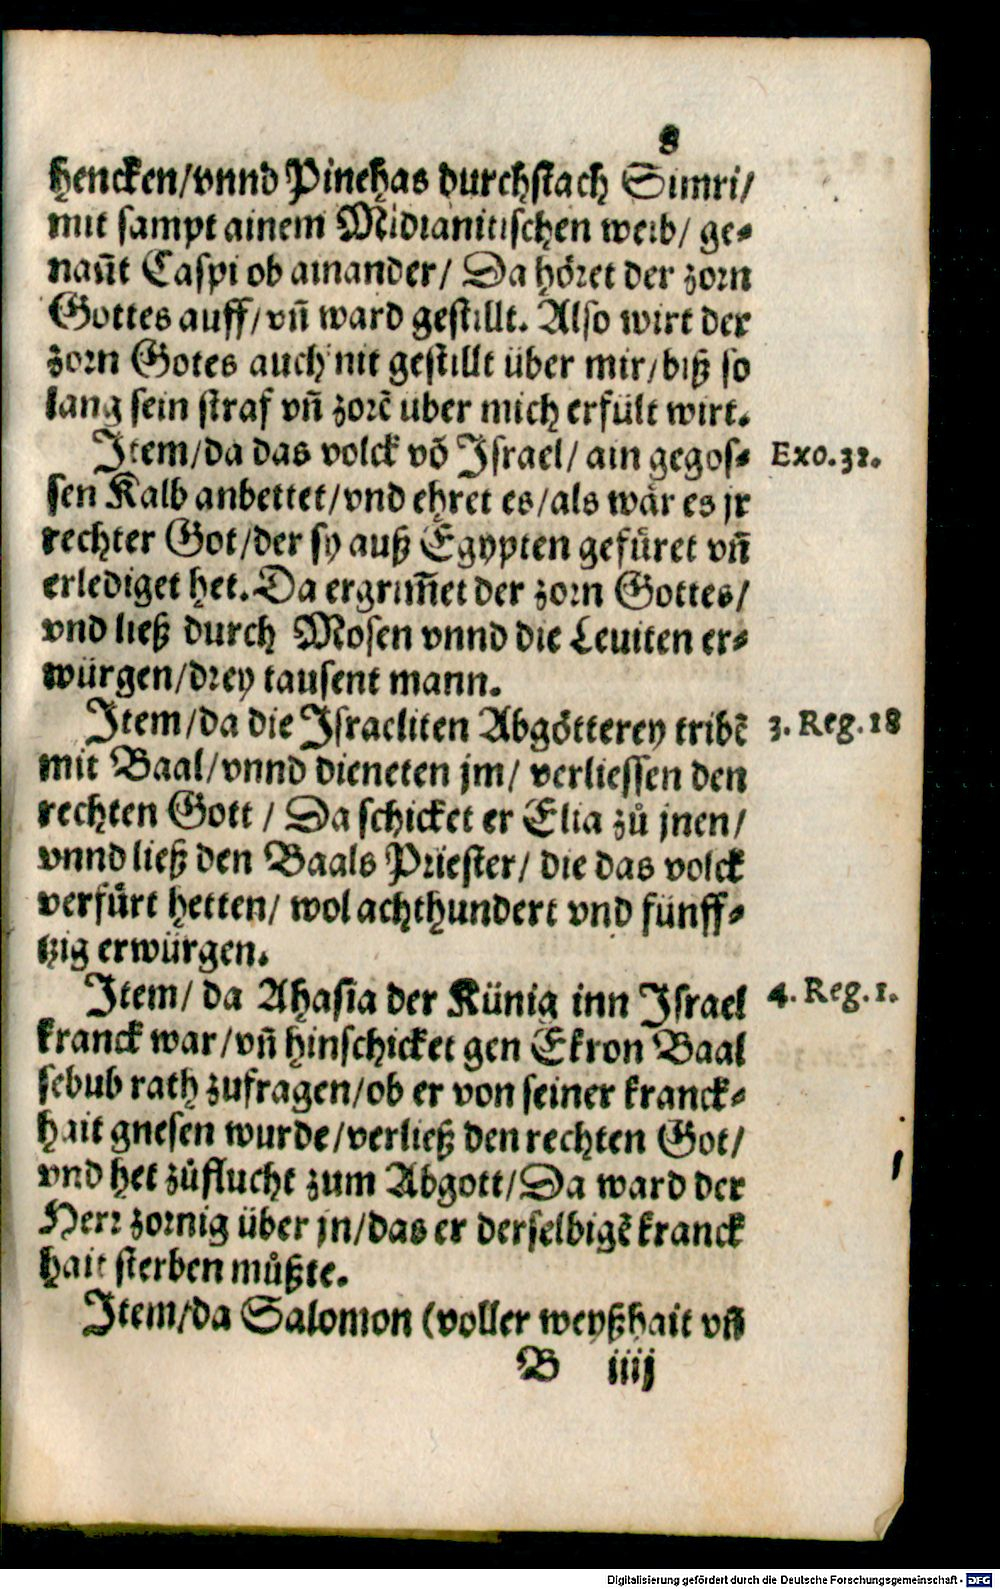 8
hencken/vnnd Pinehas durchstach Simri/
mit sampt ainem Midianitischen weib/ ge⸗
nañt Caspi ob ainander/ Da hoͤret der zorn
Gottes auff/vñ ward gestillt. Also wirt der
zorn Gotes auch nit gestillt über mir/biß so
lang sein straf vñ zorẽ uber mich erfült wirt.
Item/da das volck võ Israel/ ain gegos⸗
Exo.32.
sen Kalb anbettet/vnd ehret es/als waͤr es jr
rechter Got/der sy auß Egypten gefuͤret vñ
erlediget het. Da ergrim̃et der zorn Gottes/
vnd ließ durch Mosen vnnd die Leuiten er⸗
würgen/drey tausent mann.
Item/da die Israeliten Abgoͤtterey tribẽ
3. Reg.18
mit Baal/vnnd dieneten jm/ verliessen den
rechten Gott / Da schicket er Elia zuͦ jnen/
vnnd ließ den Baals Priester/ die das volck
verfuͤrt hetten/ wol achthundert vnd fünff⸗
tzig erwürgen.
Item/ da Ahasia der Künig inn Israel
4. Reg.1.
kranck war/vñ hinschicket gen Ekron Baal
sebub rath zufragen/ob er von seiner kranck⸗
hait gnesen wurde/verließ den rechten Got/
vnd het zuͦflucht zum Abgott/Da ward der
Herr zornig über jn/das er derselbigẽ kranck
hait sterben muͤßte.
Item/da Salomon (voller weyßhait vñ
B iiij
Digitalisierung gefördert durch die Deutsche Forschungsgemeinschaft - DFG